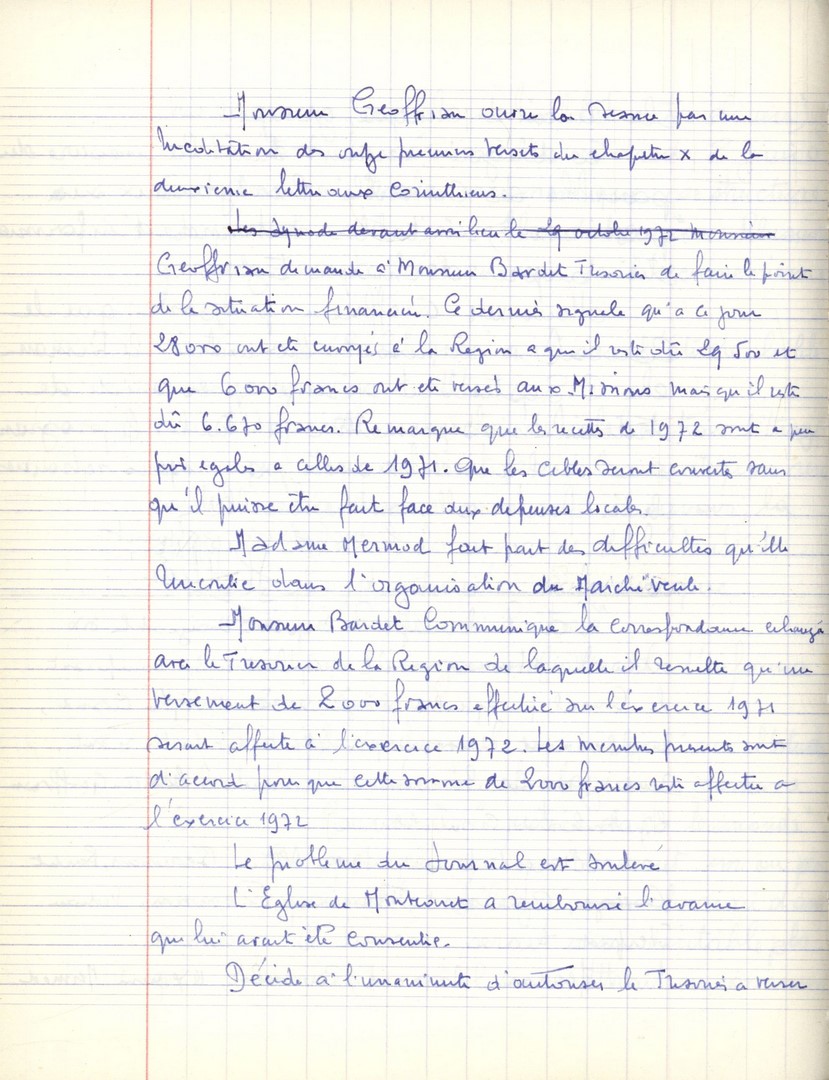 Monsieur Geoffrian ouvre la seance par une
meditation des onze premiers versets du chapitre X de la
deuxieme lettre aux Corinthiens.
Les Synode devant avoir lieu le 29 octobre 1972 Monsieur
Geoffrian demande à Monsieur Bardet Tresorier de faire le point
de la situation financière. Ce dernier signale qu'a ce jour
28000 ont ete envoyés à la Region a qui il reste dû 29 500 et
que 6000 francs ont ete versés aux Missions mais qu'il reste
dû 6.670 francs. Remarque que les recettes de 1972 sont a peu
près egales a celles de 1971. Que les cibles seront couvertes sans
qu'il puisse être fait face aux depenses locales.
Madame Mermod fait part des difficultes qu'elle
rencontre dans l'organisation du Marché vente.
Monsieur Bardet communique la correspondance echangé
avec le Tresorier de la Region de laquelle il resulte qu'un
versement de 2000 francs effectué sur l'éxercice 1971
serait affecte à l'exercice 1972. Les membres presents sont
d'accord pour que cette somme de 2000 francs reste affectee a
l'éxercice 1972
Le probleme du Journal est soulevé
L'Eglise de a remboursé l'avance
qui lui avait été consentie.
Décide à l'unanimite d'autoriser le Tresorier a verser